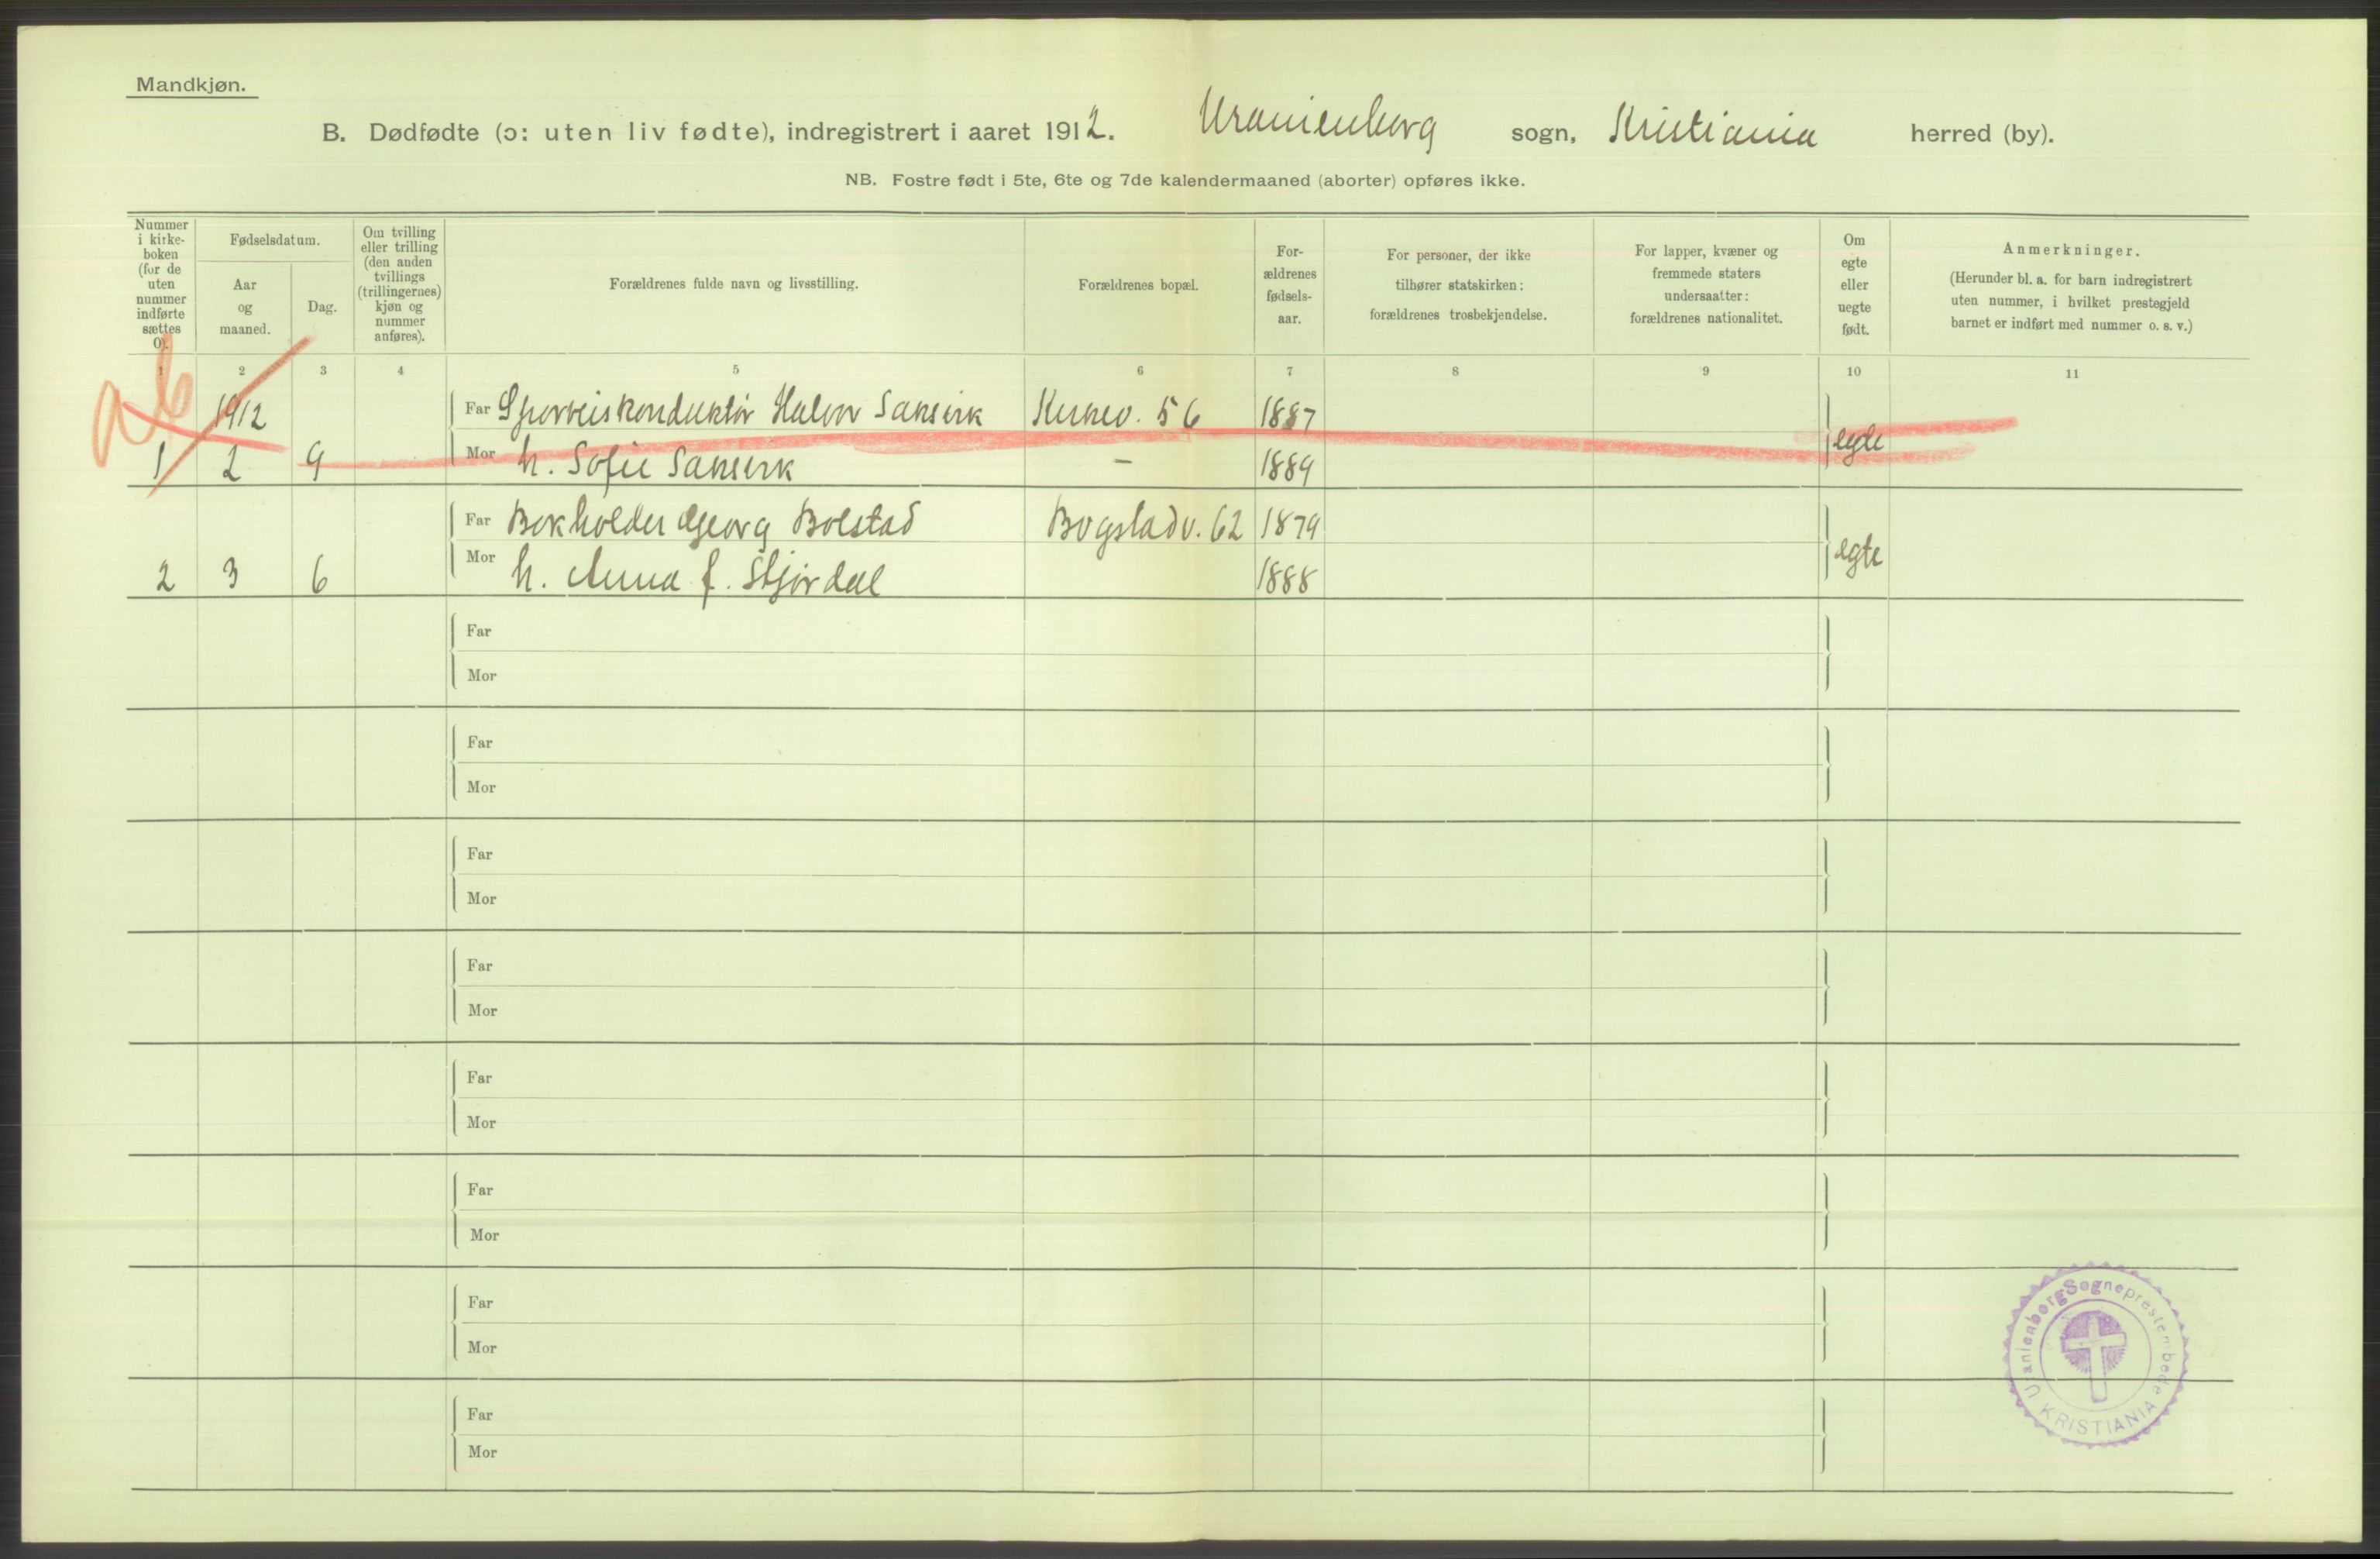 Mandkjøn.
B. Dødfødte (ɔ: uten liv fødte), indregistrert i aaret 1912. Uranienborg sogn, Kristiania herred (by).
NB. Fostre født i 5te, 6te og 7de kalendermaaned (aborter) opføres ikke.
Nummer i kirke-boken (for de uten nummer indførte sættes 0).
Fødselsdatum.
Aar og maaned.
Dag.
Om tvilling eller trilling (den anden tvillings (trillingernes) kjøn og nummer anføres).
Forældrenes fulde navn og livsstilling.
Forældrenes bopæl.
For-ældrenes fødsels-aar.
For personer, der ikke tilhører statskirken: forældrenes trosbekjendelse.
For lapper, kvæner og fremmede staters undersaatter: forældrenes nationalitet.
Om egte eller uegte født.
Anmerkninger.
(Herunder bl. a. for barn indregistrert uten nummer, i hvilket prestegjeld barnet er indført med nummer o. s. v.)
1 2 3 4 5 6 7 8 9 10 11
ab
1912 Far Sporveiskonduktør Halvor Sakserk Kirkev. 56 1887
1 2 9 Mor h. Sofie Sakserk — 1889 egte
Far Bokholder Georg Bolstad Bogstadv. 62 1879
2 3 6 Mor h. Anna f. Stjørdal 1888 egte
Far
Mor
Far
Mor
Far
Mor
Far
Mor
Far
Mor
Far
Mor
Far
Mor
Far
Mor
Uranienborg Sogneprestembede
KRISTIANIA